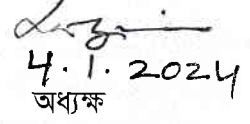 4.1.2024
অধ্যক্ষ